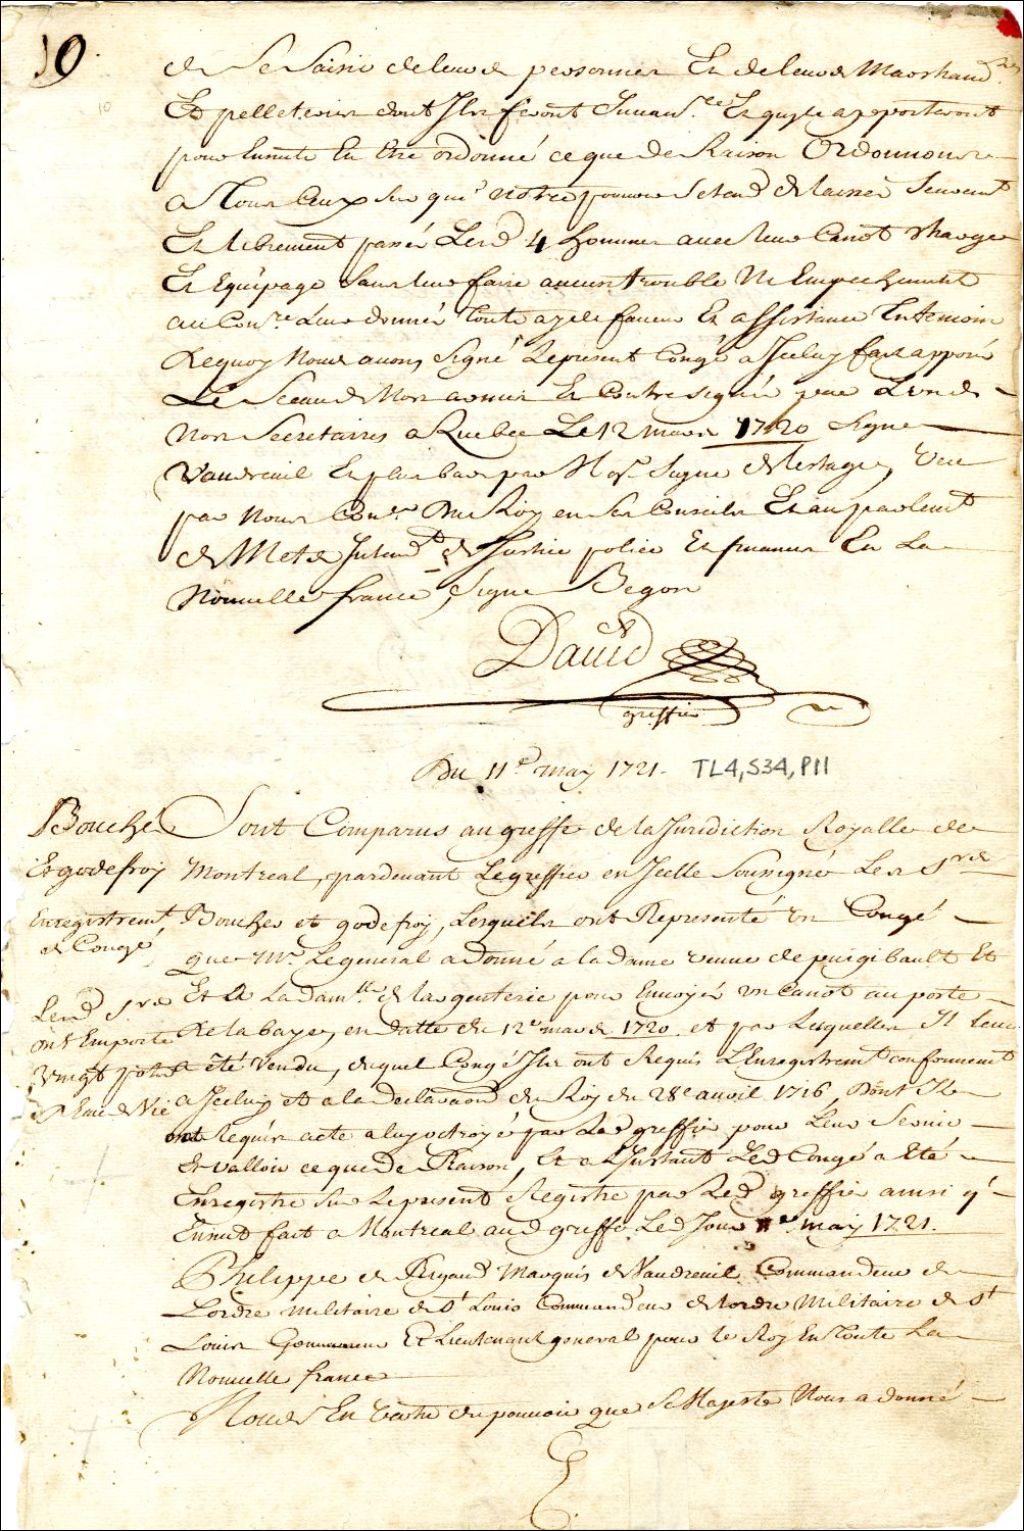 10
10
de se saisir de leurs personnes Et de leurs Marchand.ses
Et pelleteries dont Ils feront Inuent.re Et quils apporteront
pour Ensuite En Etre ordonné ce que de Raison Ordonnons
a Tous Ceux sur qui notre pouuoir setend de laisser seurement
Et librement passer Lesd 4 hommes auec leur Canot Charge
Et Equipage sans leur faire aucun trouble Ni Empechement
au Con.re Leur donner toute ayde faueur Et assistance En temoin
dequoy Nous auons signé Le present Congé a Iceluy fait apposer
Le Sceau de Nos armes Et Contresigner par L'un de
Nos Secretaires a Quebec Le 12 mars 1720 signé
Vaudreuil Et plus bas par Mgr. signé de Lestage, Veu
par Nous Con.er Du Roy en ses Conseils Et au parlement
de Metz Intend.t de Justice police Et finances En La
Nouuelle france, signé Begon
Dauid
greffier
Du 11e may 1721. TL4,S34,P11
Bouché
Et godefroy
Enregistremt
de Congé
Lesd srs
ont Emporté
Vingt pots
d'Eau de Vie
Sont Comparus au greffe de la Juridiction Royalle de
Montreal, pardeuant Le greffier en Icelle Soussigné Les Srs
Boucher et godefroy, Lesquels ont Representé Un Congé
que Mr. Le general a Donné a la Dame veuue de puigibault Et
Et a La dam.lle de largenterie pour Enuoyer un Canot au poste
de la baye, en datte du 12e mars 1720. et par Lesquelles Il leur
a été Vendu, duquel Congé Ils ont Requis L'Enregistremt conformemt
a Iceluy et a la declaraon du Roy du 28e auril 1716, Dont Ils
ont Requis acte a luy octroyé par Led greffier pour Leur Seruir
Et valloir ce que De Raison, Et a L'Instant Led Congé a Eté
Enregistré sur Le present Registre par Led greffier ainsi q'
Ensuit fait a Montreal aud greffe Led Jour 11e may 1721.
Philippe de Rigaud Marquis de Vaudreuil Commandeur de
L'ordre militaire de St Louis Commandeur de lordre Militaire de St
Louis Gouuerneur Et Lieutenant general pour le Roy En toute La
Nouuelle france
Nous En Vertu du pouuoir que Sa Majesté Nous a donné